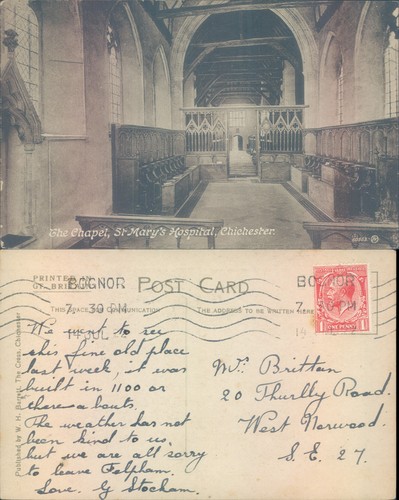 The Chapel, St Mary's Hospital, Chichester.
PRINTED IN
GT. BRITAIN
POST CARD
THIS SPACE FOR COMMUNICATION
THE ADDRESS TO BE WRITTEN HERE
BOGNOR
7. 30 PM
14 JUL
BOGNOR
7. PM
POSTAGE
ONE PENNY
Published by W. H. Barrett, The Cross, Chichester
We went to see
this fine old place
last week, it was
built in 1100 or
there a bouts.
The weather has not
been kind to us,
but we are all sorry
to leave Felpham.
Love. G Stocham.
Mrs. Brittan
20 Thurlby Road.
West Norwood.
S. E. 27.